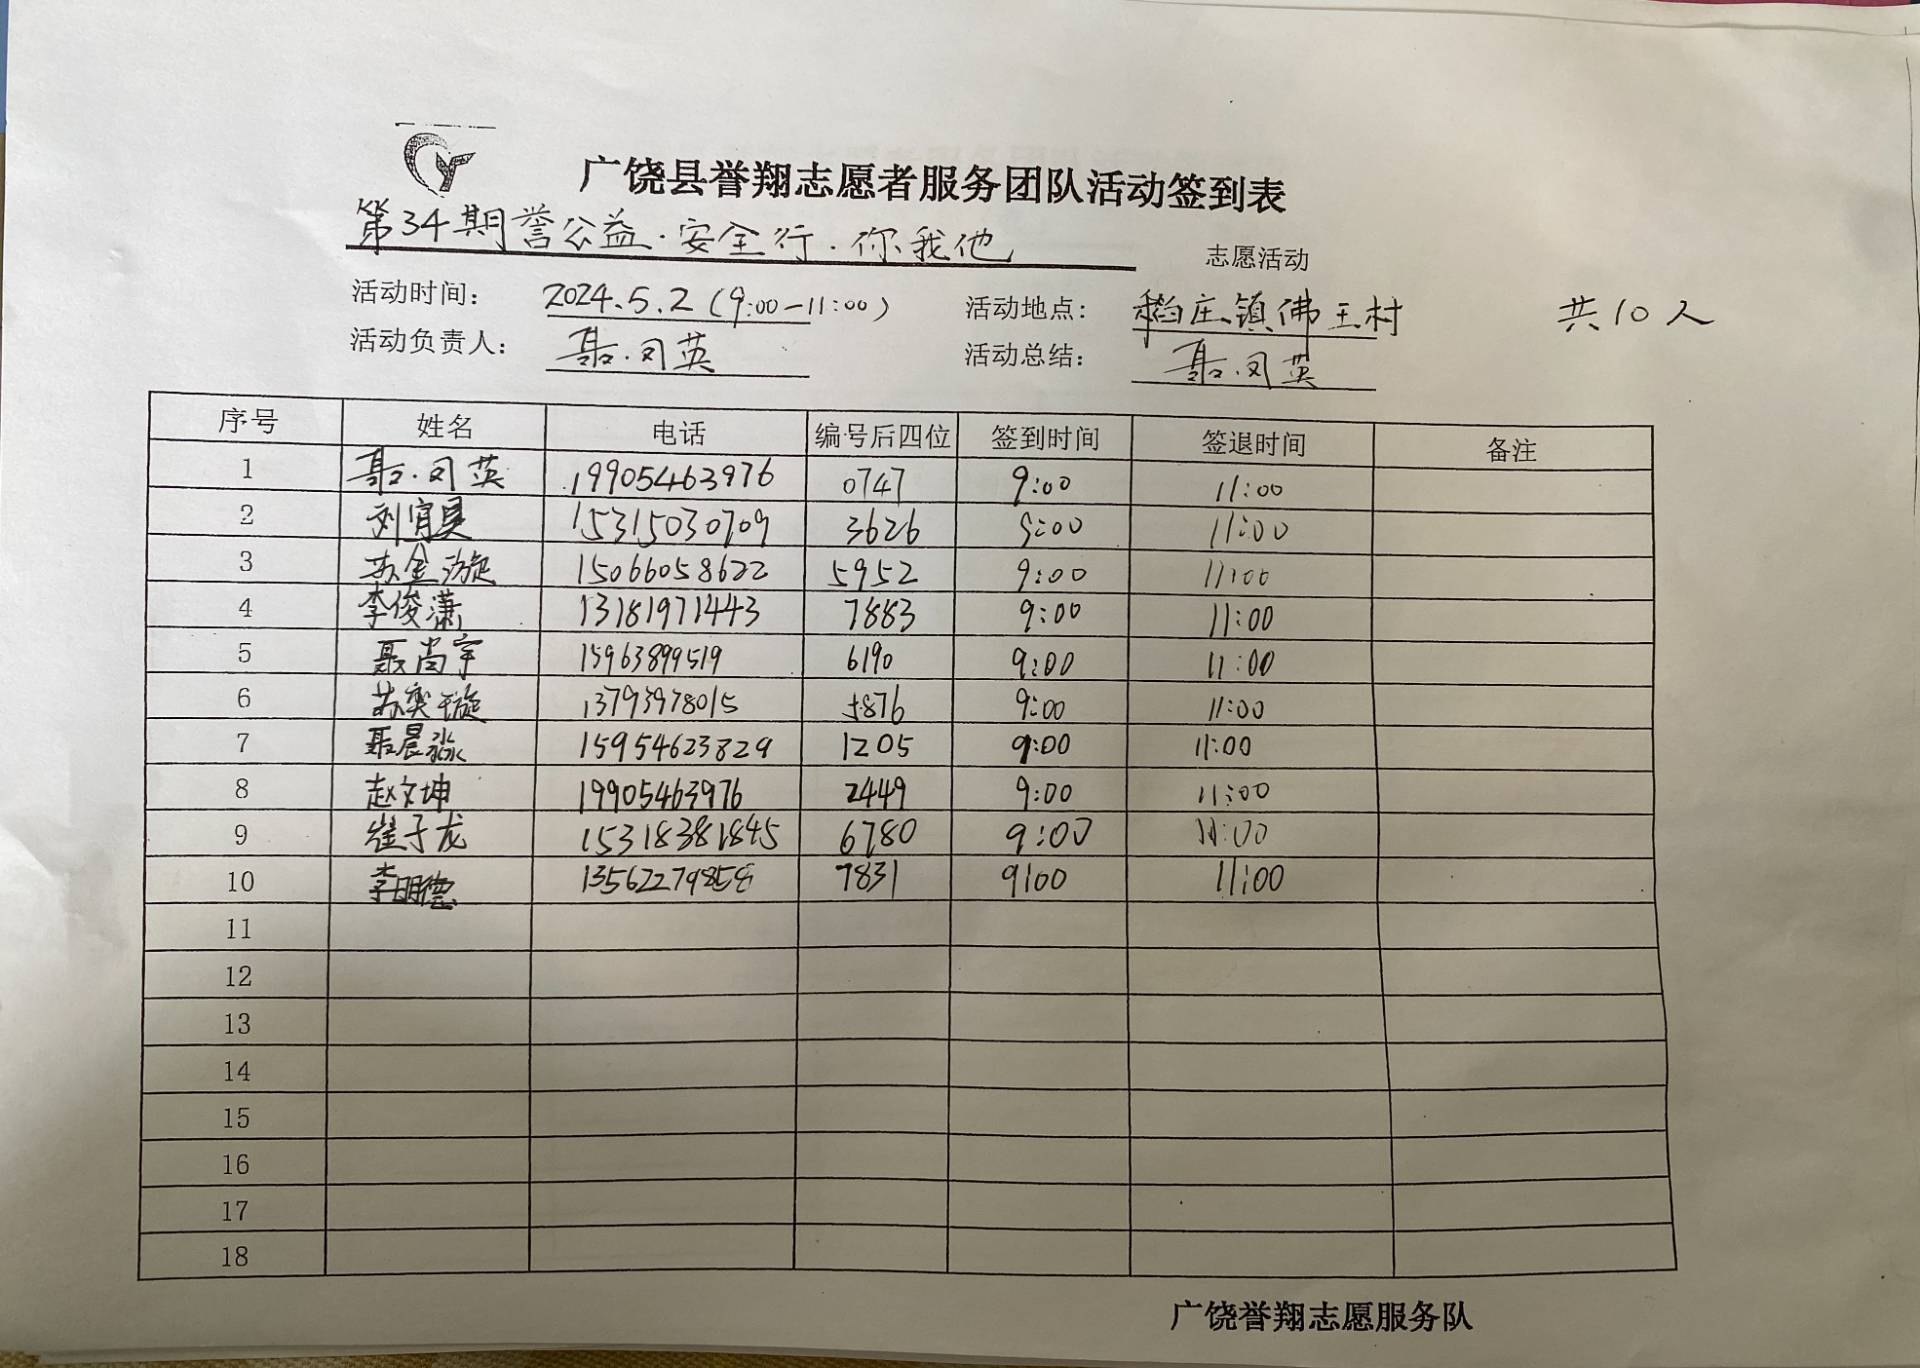 广饶县誉翔志愿者服务团队活动签到表
第34期誉公益·安全行·你我他 志愿活动
活动时间： 2024.5.2（9:00-11:00） 活动地点： 稻庄镇佛王村 共10人
活动负责人： 聂凤英 活动总结： 聂凤英
序号 姓名 电话 编号后四位 签到时间 签退时间 备注
1 聂凤英 19905463976 0747 9:00 11:00
2 刘宜昊 15315030709 3626 9:00 11:00
3 苏金漩 15066058622 5952 9:00 11:00
4 李俊潇 13181971443 7883 9:00 11:00
5 聂尚宇 15963899519 6190 9:00 11:00
6 苏奕璇 13793978015 5876 9:00 11:00
7 聂晨淼 15954623829 1205 9:00 11:00
8 赵文坤 19905463976 2449 9:00 11:00
9 崔子龙 15318381845 6780 9:00 11:00
10 李明德 13562279858 7831 9:00 11:00
11
12
13
14
15
16
17
18
广饶誉翔志愿服务队